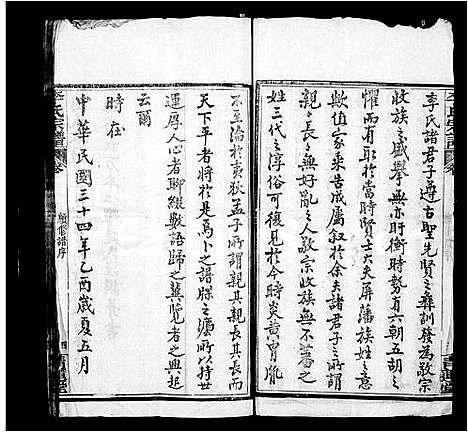 李氏諸君子遵古聖先賢之彝訓發為敬宗
收族之盛舉無亦盱衡時勢有六朝五胡之
懼而有於當時賢士大夫屏藩族姓之意
歟值家乘告成屬叙於余夫諸君子所謂
親之長之無好亂之人敬宗收族無不蕃之
姓三代之淳俗可復見於今時炎黃胄胤
不至淪於夷狄孟子所謂親其親長其長而
天下平者將於是焉卜之譜牒之瀘所以持世
運厚人心者聊綴數語歸之冀覽者之興起
云爾
時在
中華民國三十四年乙酉歲夏五月
李氏宗譜 卷
續修譜序
四